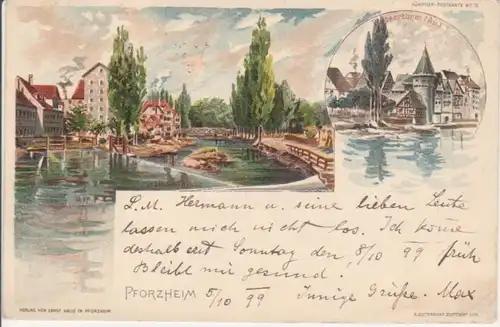 KÜNSTLER-POSTKARTE
L. M. Hermann u. seine lieben Leute
lassen mich nicht los. Ich komme
deshalb erst Sonntag den 8/10 99 früh
Bleibt mir gesund.
PFORZHEIM 5/10 99 Innige Grüße. Max
VERLAG VON ERNST HAUG IN PFORZHEIM